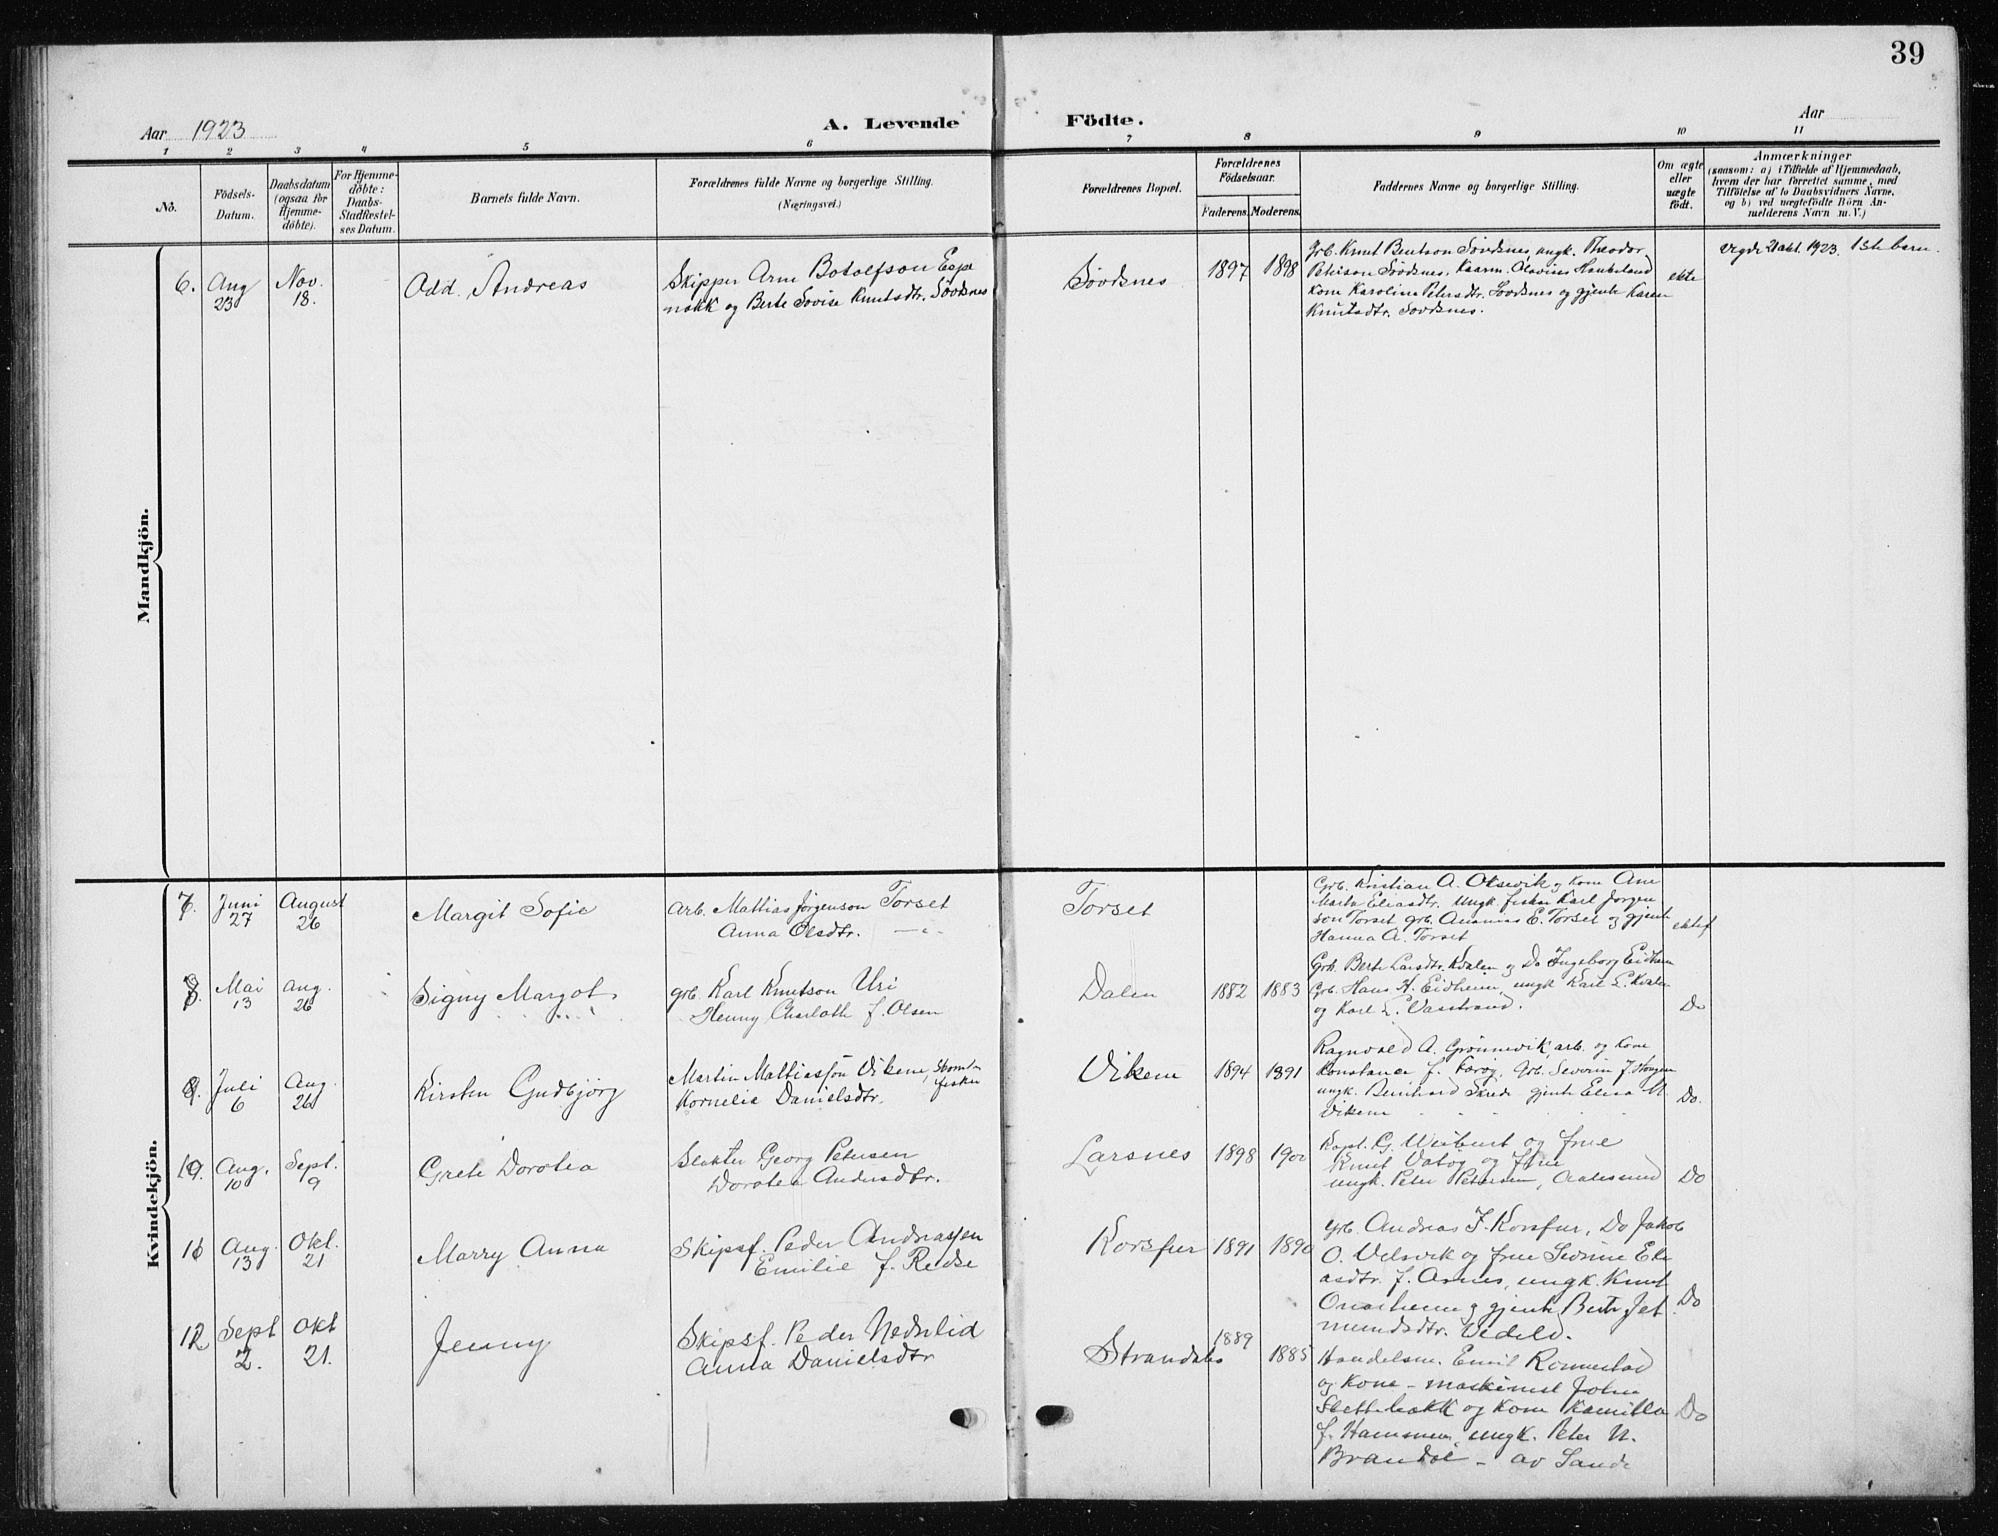 39
Aar 1923
A. Levende Födte.
Aar
1 2 3 4 5 6 7 8 9 10 11
No.
Födsels-Datum.
Daabsdatum (ogsaa for Hjemme-döbte).
For Hjemme-döbte: Daabs-Stadfæstel-ses Datum.
Barnets fulde Navn.
Forældrenes fulde Navne og borgerlige Stilling.
(Næringsvei.)
Forældrenes Bopæl.
Forældrenes Födselsaar.
Faderens. Moderens.
Faddernes Navne og borgerlige Stilling.
Om ægte eller uægte födt.
Anmærkninger
(saasom: a) i Tilfælde af Hjemmedaab,
hvem der har forrettet samme, med
Tilföielse af to Daabsvidners Navne,
og b) ved uægtefödte Börn An-
melderens Navn m. V.)
Mandkjön.
6. Aug 23 Nov. 18. Odd Andreas
Skipper Arne Botolfson Espe
nakk og Berte Lovise Knutsdtr. Sövdsnes
Sövdsnes 1897 1898
Grb. Knut Bentson Sövdsnes, ungk. Theodor
Peterson Sövdsnes, Kaarm. Olavius Haukeland
Kone Karoline Petersdtr. Sövdsnes og gjente Karen
Knutsdtr. Sövdsnes.
ekte
Vigde 21 okt. 1923. 1ste barn.
Kvindekjön.
7. Juni 27 August 26 Margit Sofie
Arb. Mattias Jörgenson Torset
Anna Olsdtr. —"—
Torset
Grb. Kristian A. Oksevik og Kone Ane
Marta Eliasdtr. Ungk. fisker Karl Jörgen
son Torset grb. Ananias E. Torset og gjente
Hanna A. Torset
ektef
8. Mai 13 Aug. 26 Signy Margot
grb. Karl Knutson Uri
Henny Charloth f. Olsen
Dalen 1882 1883
Grk. Berte Larsdtr. Kvalen og Do Ingeborg Eidhem
Grb. Hans H. Eidheim, ungk Karl L. Kvalen
og Karl L. Vasstrand.
Do
9. Juli 6 Aug. 26 Kirsten Gudbjörg
Martin Mattiasson Vikene, Strand-
fisker
Kornelie Danielsdtr.
Vikene 1894 1891
Ragnvald A. Grönnevik, arb. og Kone
Konstance f. Faröy, Grb. Severin J Haugen
ungk. Beinhard Skrede gjente Elisa M.
Vikene
Do.
10. Aug. 10 Sept. 9 Grete Dorotea
Slakter Georg Petersen
Dorotea Andersdtr.
Larsnes 1898 1900
Kapt. G. Weiburt og frue
Knut Vatöy og frue
ungk. Peter Petersen, Aalesund
Do
11 Aug. 13 Okt. 21 Marry Anna
Skipsf. Peder Andreassen
Emilie f. Redse
Korsfur 1891 1890
grb. Andreas J. Korsfur, Do Jakob
O. Velsvik og frue Severine Eli
asdtr. f. Aarnes, ungk. Knut
Onarheim og gjente Berte Jet
mundsdtr. Vedeld.
Do
12 Sept 2. Okt 21. Jenny
Skipsf. Peder Nedrelid
Anna Danielsdtr
Strandabø 1889 1885
Handelsm. Emil Rönnestad
og Kone - maskinist Johan
Slettebakk og Kone Kamilla
f. Hammer, ungk. Peter N.
Brandal - av Sande
Do